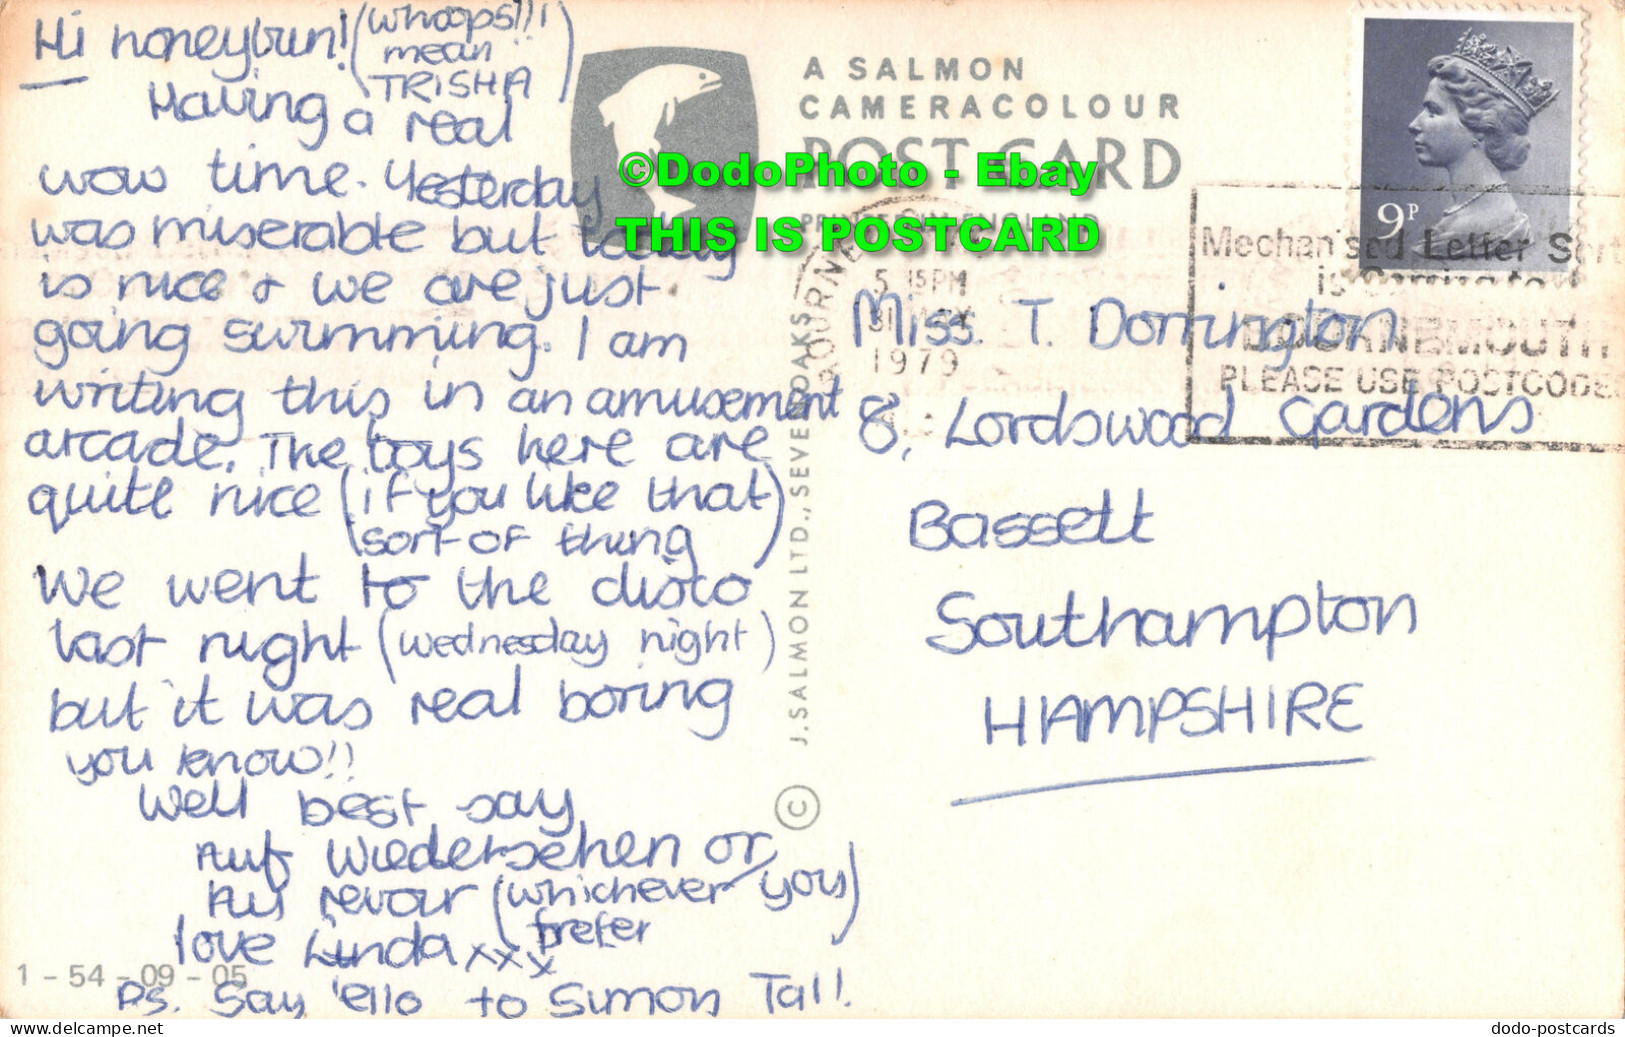 Hi honeybun! (whoops!!!
mean
TRISHA)
Having a real
wow time. Yesterday
was miserable but today
is nice & we are just
going swimming. I am
writing this in an amusement
arcade. The boys here are
quite nice (if you like that)
(sort of thing)
We went to the disco
last night (wednesday night)
but it was real boring
you know!!
Well best say
Auf Wiedersehen or
Au revoir (whichever you)
prefer
love Linda xxx
Ps. Say 'ello to Simon Tall.
1 - 54 - 09 - 05
A SALMON
CAMERACOLOUR
POST CARD
PRINTED IN ENGLAND
©DodoPhoto - Ebay
THIS IS POSTCARD
© J. SALMON LTD., SEVENOAKS
5 15PM
31 MAY
1979
9P
Mechanised Letter Sort
is coming to
BOURNEMOUTH
PLEASE USE POSTCODES
Miss. T. Dorrington
8, Lordswood Gardens
Bassett
Southampton
HAMPSHIRE
www.delcampe.net
dodo-postcards